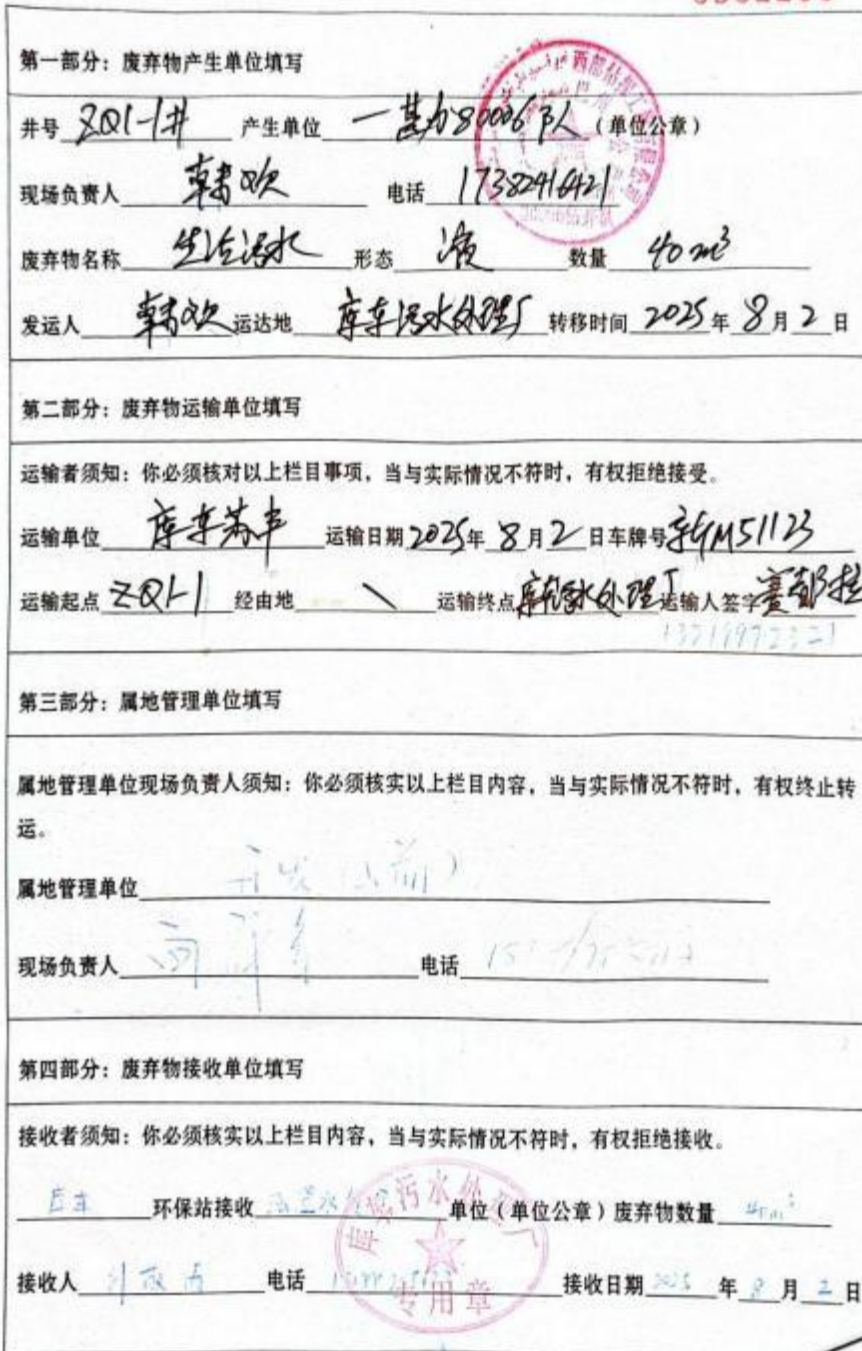 第一部分：废弃物产生单位填写
井号 ZQ1-1井 产生单位 一勘办80006队（单位公章）
现场负责人 韩欢 电话 17382416421
废弃物名称 生活污水 形态 液 数量 40m³
发运人 韩欢 运达地 库车污水处理厂 转移时间 2025年8月2日
第二部分：废弃物运输单位填写
运输者须知：你必须核对以上栏目事项，当与实际情况不符时，有权拒绝接受。
运输单位 库车 运输日期 2025年8月2日 车牌号 M51123
运输起点 ZQ1-1 经由地 \ 运输终点 库车污水处理厂 运输人签字
第三部分：属地管理单位填写
属地管理单位现场负责人须知：你必须核实以上栏目内容，当与实际情况不符时，有权终止转
运。
属地管理单位
现场负责人 电话
第四部分：废弃物接收单位填写
接收者须知：你必须核实以上栏目内容，当与实际情况不符时，有权拒绝接收。
库车 环保站接收 单位（单位公章）废弃物数量 40m³
接收人 电话 接收日期 2025年8月2日
污水处理厂
专用章